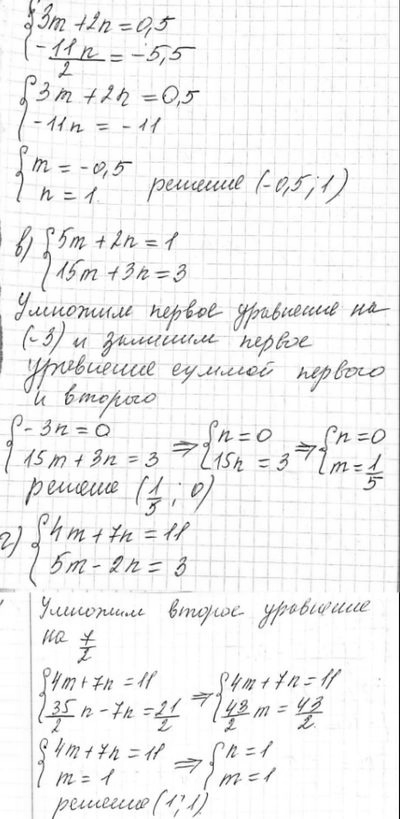 {3m + 2n = 0,5
{-11n/2 = -5,5
{3m + 2n = 0,5
{-11n = -11
{m = -0,5
{n = 1. решение (-0,5; 1)
в) {5m + 2n = 1
{15m + 3n = 3
Умножим первое уравнение на
(-3) и запишим первое
уравнение суммой первого
и второго
{-3n = 0 ⇒ {n = 0 ⇒ {n = 0
{15m + 3n = 3 {15n = 3 {m = 1/5
решение (1/5; 0)
г) {4m + 7n = 11
{5m - 2n = 3
Умножим второе уравнение
на 7/2
{4m + 7n = 11 ⇒ {4m + 7n = 11
{35/2 n - 7n = 21/2 {43/2 m = 43/2
{4m + 7n = 11 ⇒ {n = 1
{m = 1 {m = 1
решение (1; 1)